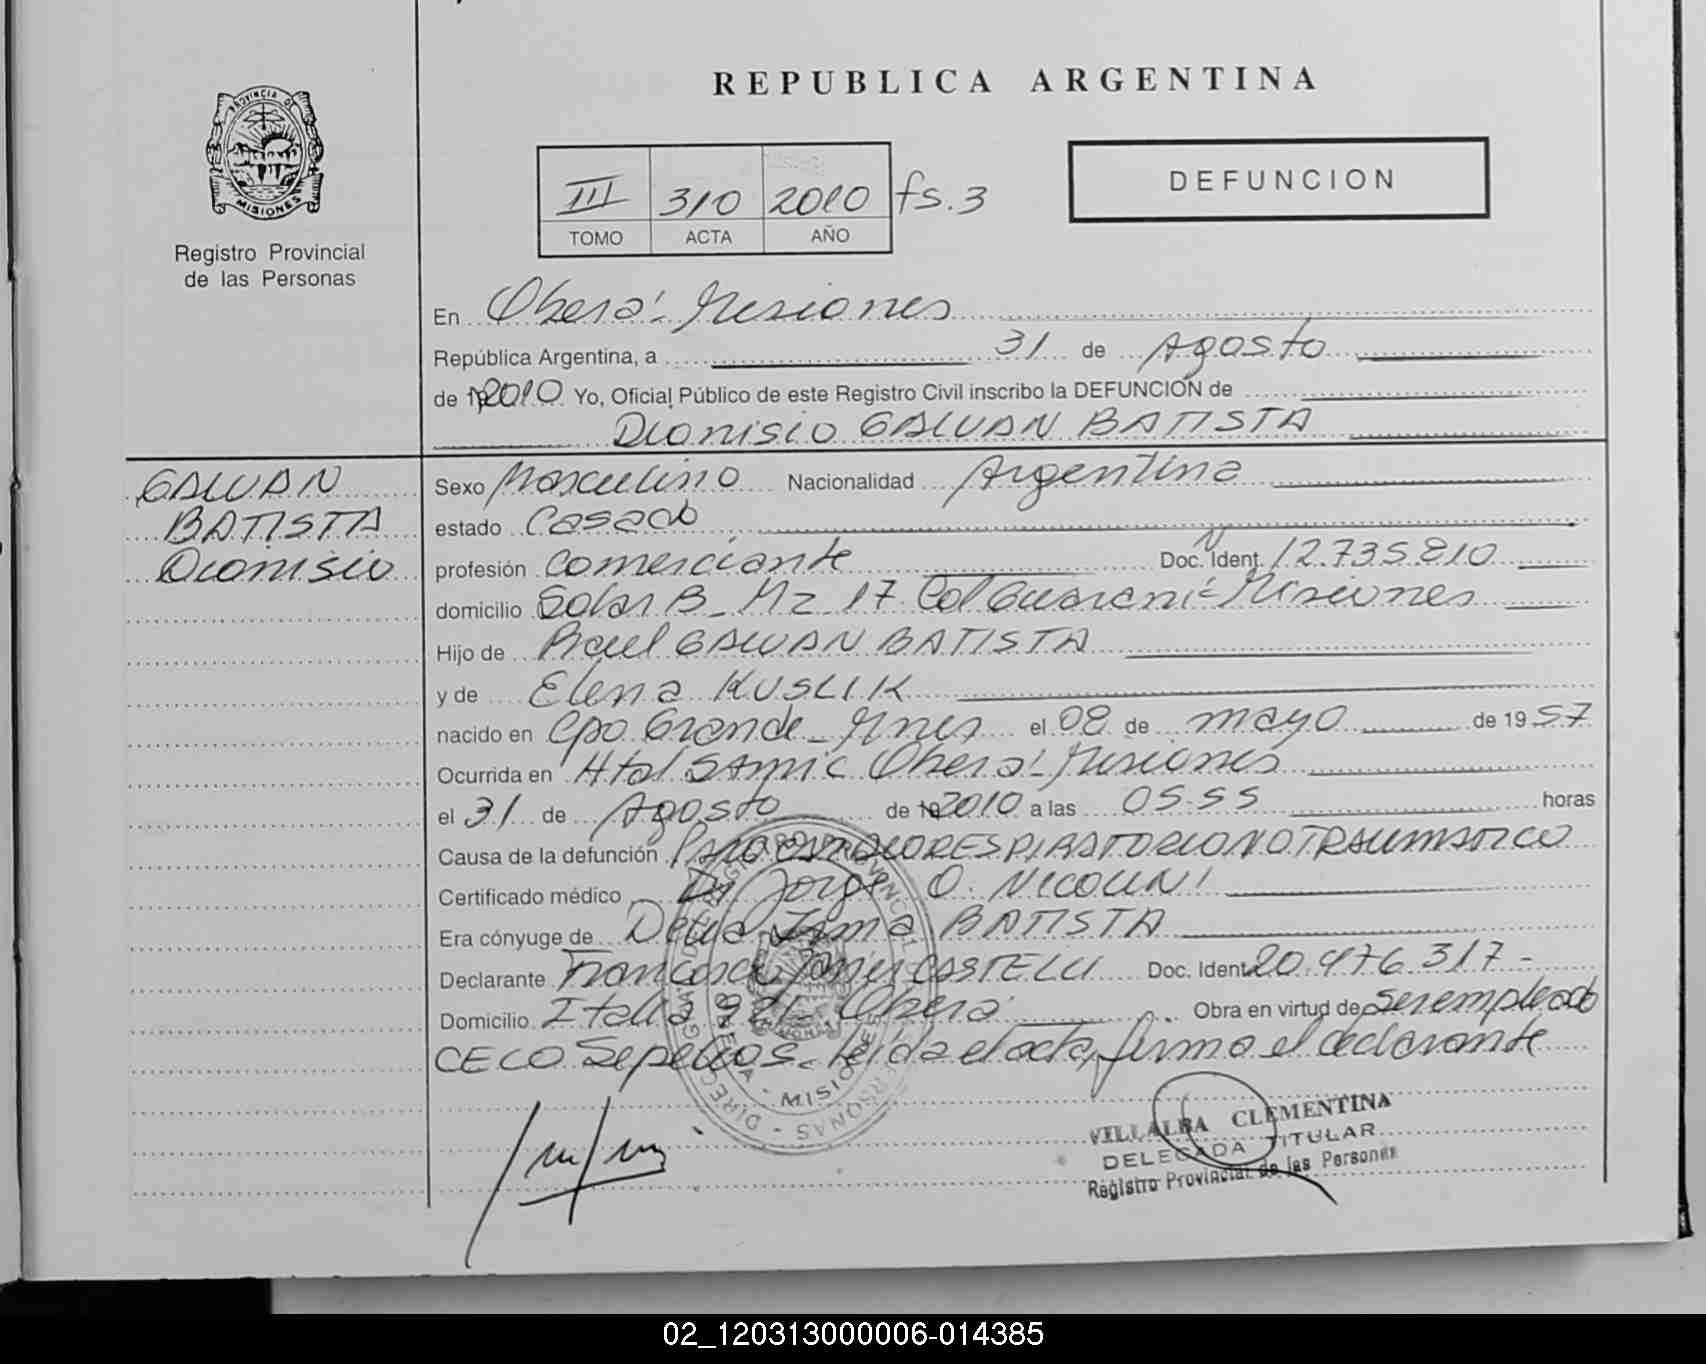 REPUBLICA ARGENTINA
PROVINCIA DE
MISIONES
Registro Provincial
de las Personas
III 310 2010 fs.3
TOMO ACTA AÑO
DEFUNCION
En Oberá - Misiones
República Argentina, a 31 de Agosto
de 19 2010 Yo, Oficial Público de este Registro Civil inscribo la DEFUNCION de
Dionisio GALVAN BATISTA
GALVAN
BATISTA
Dionisio
Sexo Masculino Nacionalidad Argentina
estado Casado
profesión Comerciante Doc. N Ident. 12.735.810
domicilio Solar B - Mz 17 Col Guarani - Misiones
Hijo de Raul GALVAN BATISTA
y de Elena KUSLIK
nacido en Cpo Grande - Mnes el 08 de mayo de 1957
Ocurrida en Htal SAMIC Oberá - Misiones
el 31 de Agosto de 19 2010 a las 05.55 horas
Causa de la defunción PARO CARDIORESPIRATORIO NO TRAUMATICO
Certificado médico Dr Jorge O. NICOLINI
Era cónyuge de Delia Irma BATISTA
Declarante Francisco Javier CASTELLI Doc. Ident. 20.476.317-
Domicilio Italia 921 - Oberá Obra en virtud de ser empleado
CELO Sepelios - leida el acta, firma el declarante
MISIONES
VILLALBA CLEMENTINA
DELEGADA TITULAR
Registro Provincial de las Personas
02_120313000006-014385